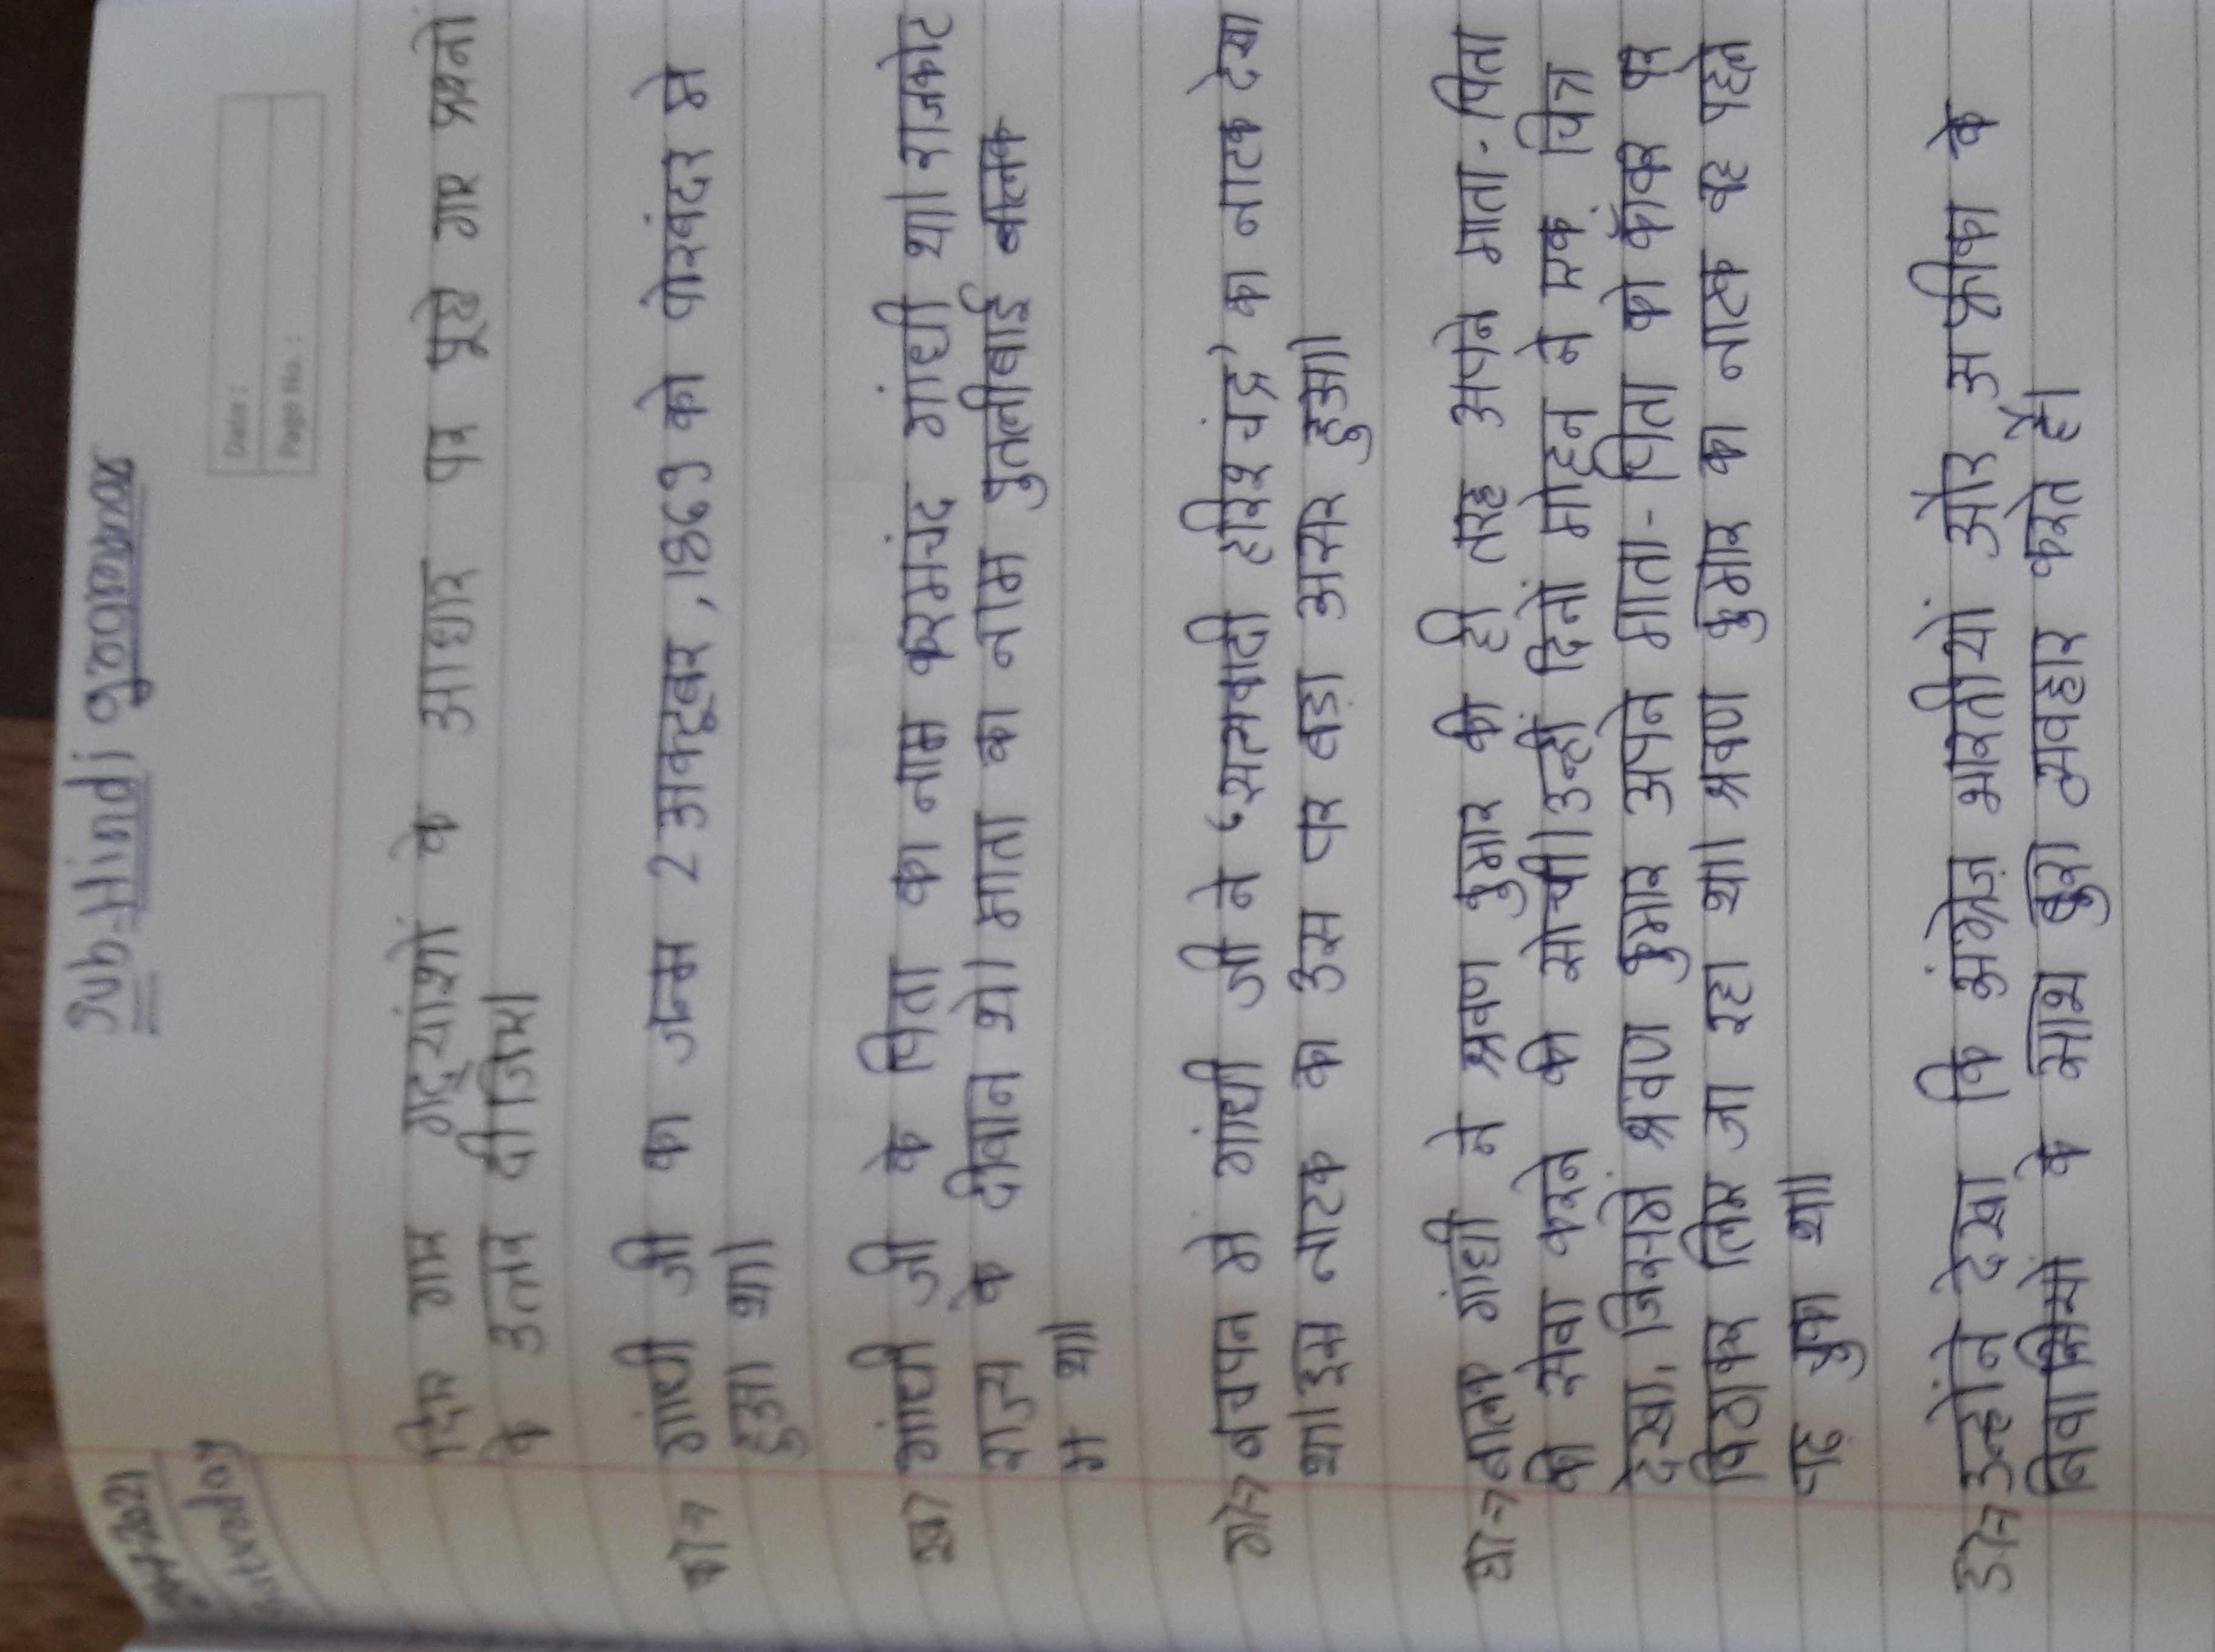 Sub-Hindi grammar
Saturday
Date:
Page No.:
दिए गए गद्यांशों के आधार पर पूछे गए प्रश्नो
के उत्तर दीजिए।
क)→ गांधी जी का जन्म 2 अक्टूबर, 1869 को पोरबंदर में
हुआ था।
ख) गांधी जी के पिता का नाम करमचंद गांधी था। राजकोट
राज्य के दीवान थे। माता का नाम पुतलीबाई
था।
ग)→ बचपन में गांधी जी ने 'सत्यवादी हरिश्चंद्र' का नाटक देखा
था। इस नाटक का उस पर बड़ा असर हुआ।
घ)→ बालक गांधी ने श्रवण कुमार की ही तरह अपने माता-पिता
की सेवा करने की सोची। उन्हीं दिनों मोहन ने एक चित्र
देखा, जिसमें श्रवण कुमार अपने माता-पिता को काँवर पर
बिठाकर लिए जा रहा था। श्रवण कुमार का नाटक वह पहले
पढ़ चुका था।
ङ)→ उन्होंने देखा कि अंग्रेज़ भारतीयों और अफ्रीका के
निवासियों के साथ बुरा व्यवहार करते हैं।